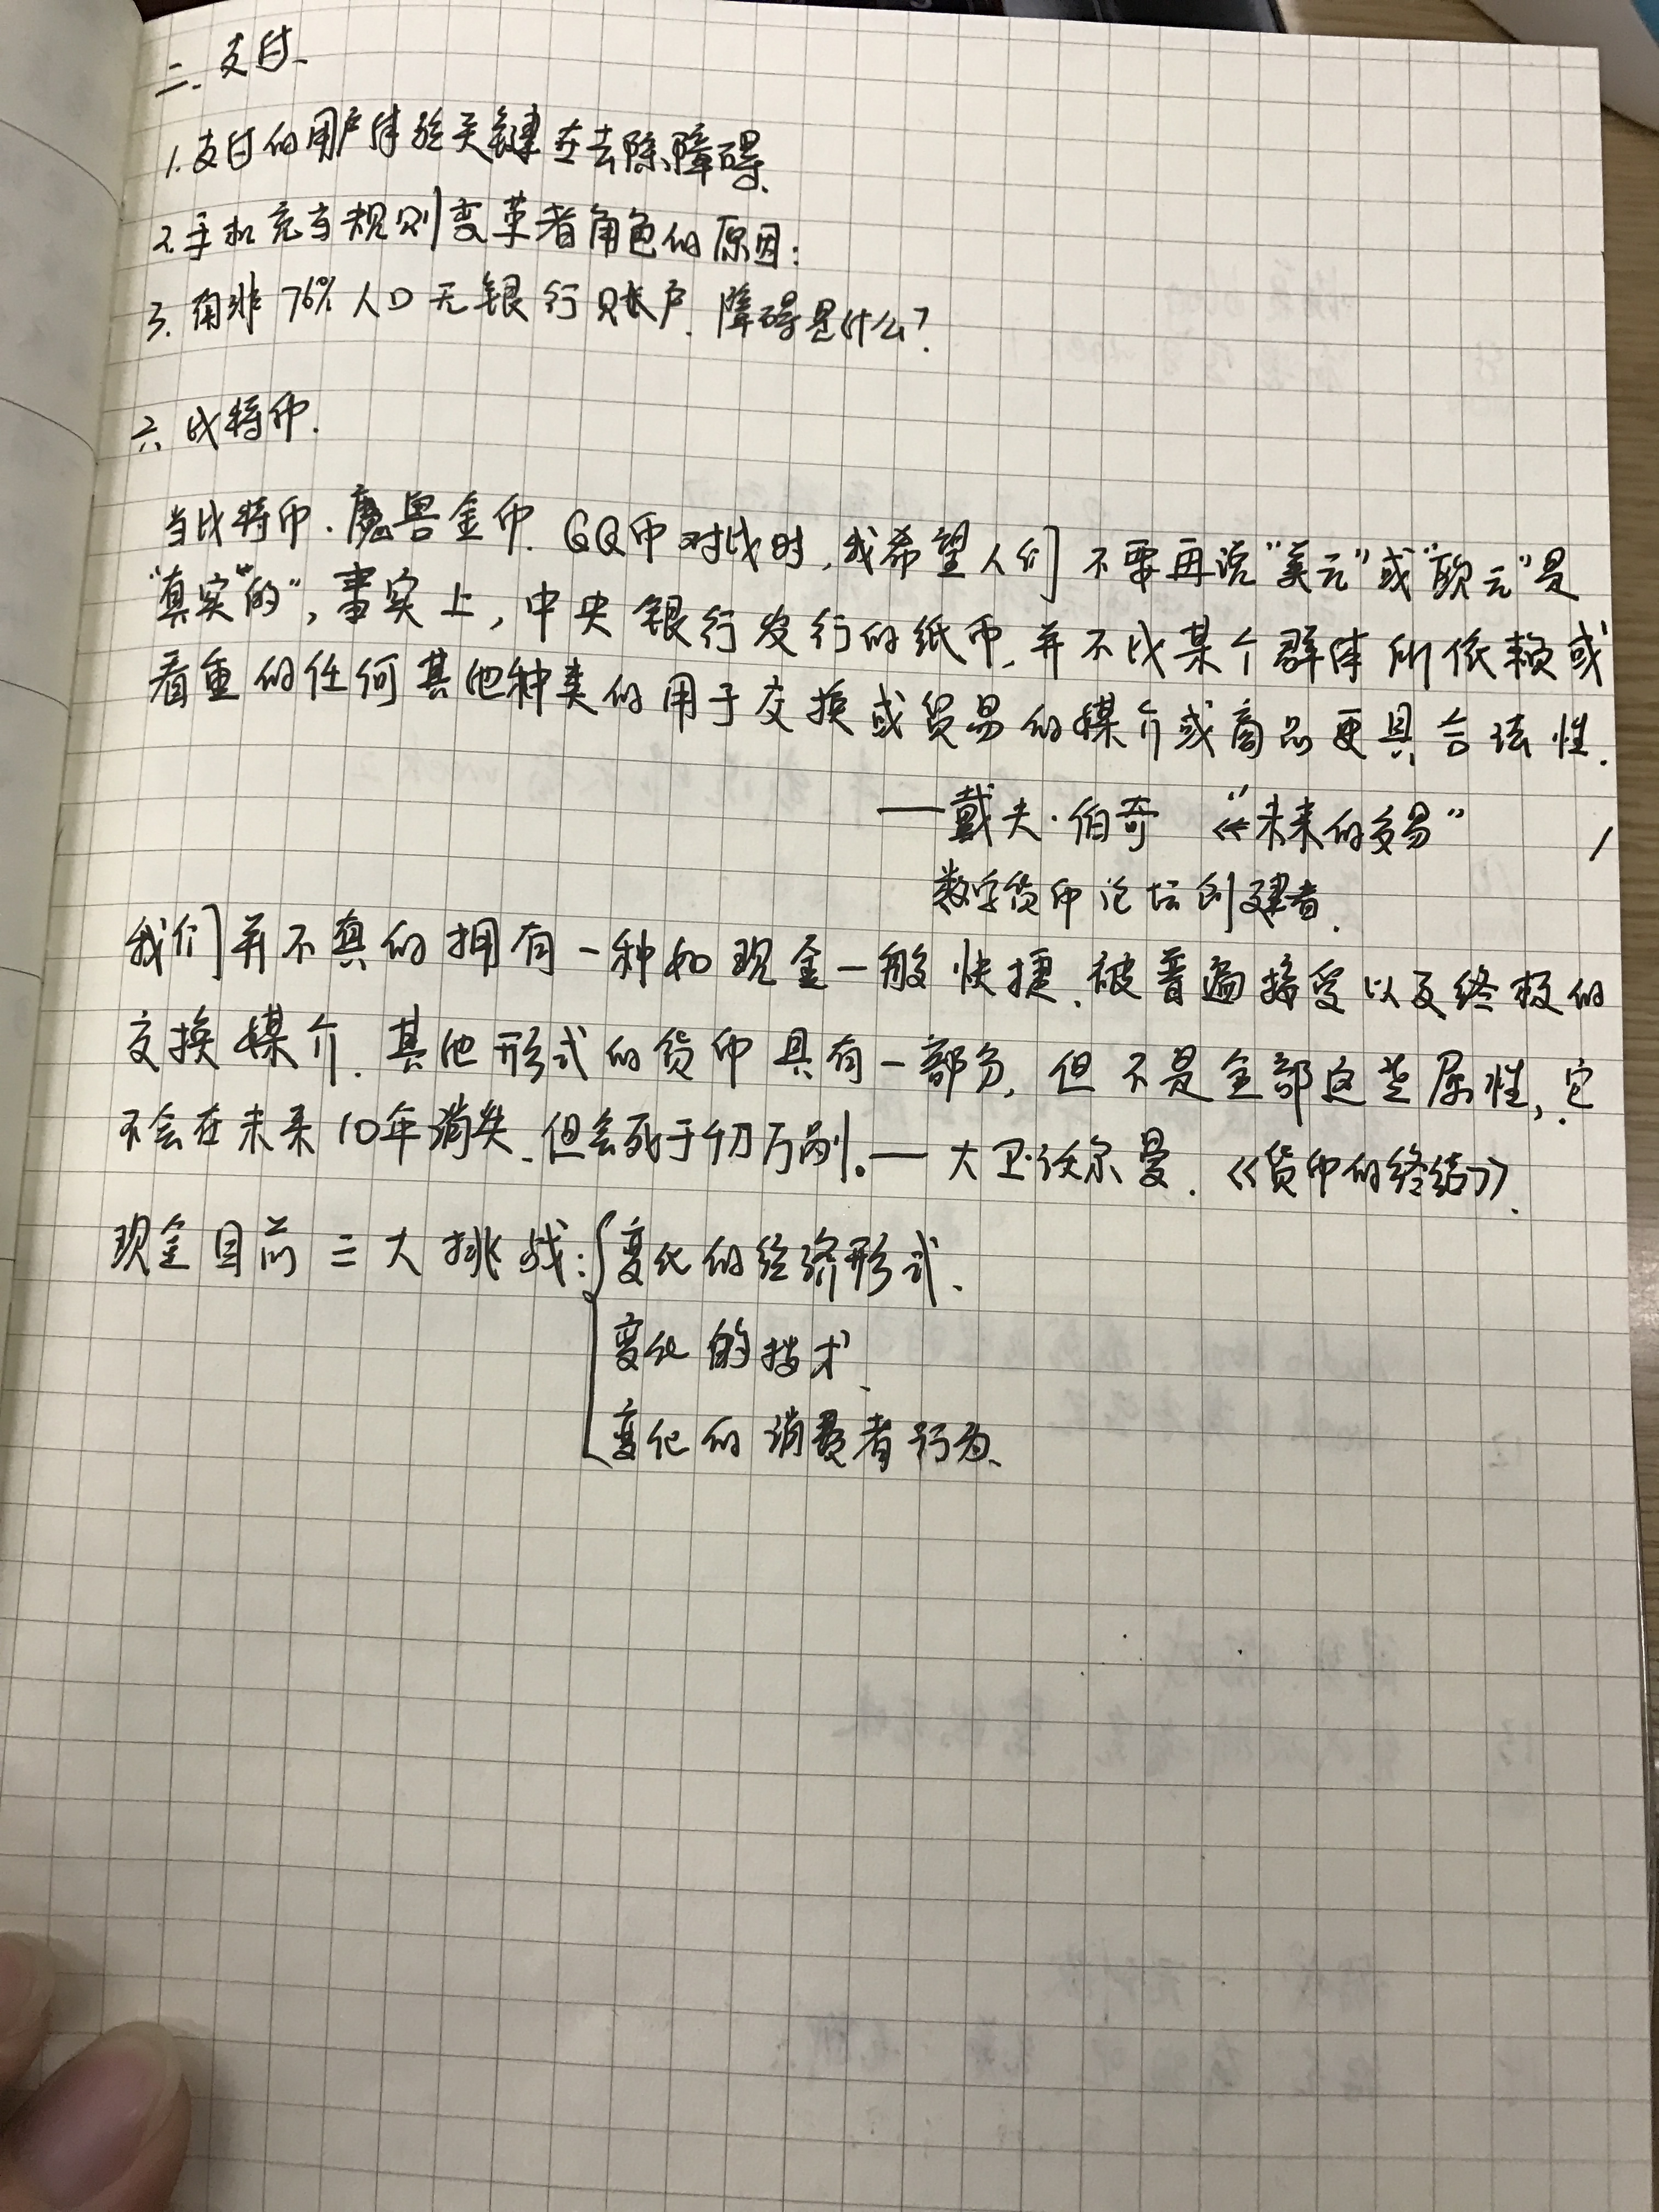 二、支付、
1.支付的用户体验关键在去除障碍、
2.手机充当规则变革者角色的原因：
3.南非76%人口无银行账户.障碍是什么？
六、比特币.
当比特币.魔兽金币.QQ币对比时,我希望人们不要再说“美元”或“欧元”是
“真实”的”,事实上,中央银行发行的纸币,并不比某个群体所依赖或
看重的任何其他种类的用于交换或贸易的媒介或商品更具合法性.
——戴夫·伯奇 《“未来的交易”
数字货币论坛创建者.
我们并不真的拥有一种如现金一般快捷、被普遍接受以及终极的
交换媒介.其他形式的货币具有一部分,但不是全部这些属性,它
不会在未来10年消失、但会死于千刀万剐。——大卫·沃尔曼.《货币的终结》.
现金目前三大挑战：{变化的经济形式、
变化的技术、
变化的消费者行为、